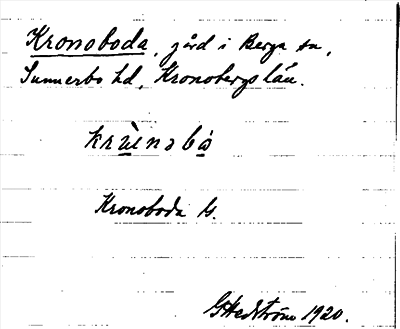 Kronoboda, gård i Berga sn,
Sunnerbo hd, Kronobergs län.
Kronoboda G.
GHedström 1920.